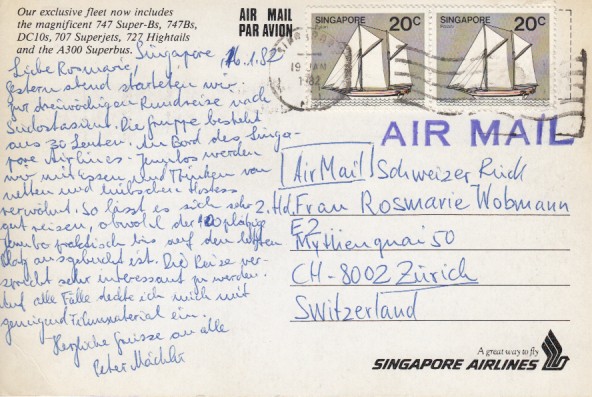 Our exclusive fleet now includes
the magnificent 747 Super-Bs, 747Bs,
DC10s, 707 Superjets, 727 Hightails
and the A300 Superbus.
AIR MAIL
PAR AVION
SINGAPORE 20c
SINGAPORE 20c
19 JAN
1982
AIR MAIL
Singapore, 16.1.82
Liebe Rosmarie,
Gestern abend starteten wir
zur dreiwöchigen Rundreise nach
Südostasien. Die Gruppe besteht
aus 30 Leuten. An Bord des Singa-
pore Airlines-Jumbos werden
wir mit Essen und Trinken von
netten und hübschen Hostess
verwöhnt. So lässt es sich sehr
gut reisen, obwohl der 400plätzige
Jumbo praktisch bis auf den letzten
Platz ausgebucht ist. Die Reise ver-
spricht sehr interessant zu werden.
Auf alle Fälle deckte ich mich mit
genügend Filmmaterial ein.
Herzliche Grüsse an alle
Peter Mächler
Air Mail Schweizer Rück
z. Hd. Frau Rosmarie Wobmann
E2
Mythenquai 50
CH-8002 Zürich
Switzerland
A great way to fly
SINGAPORE AIRLINES